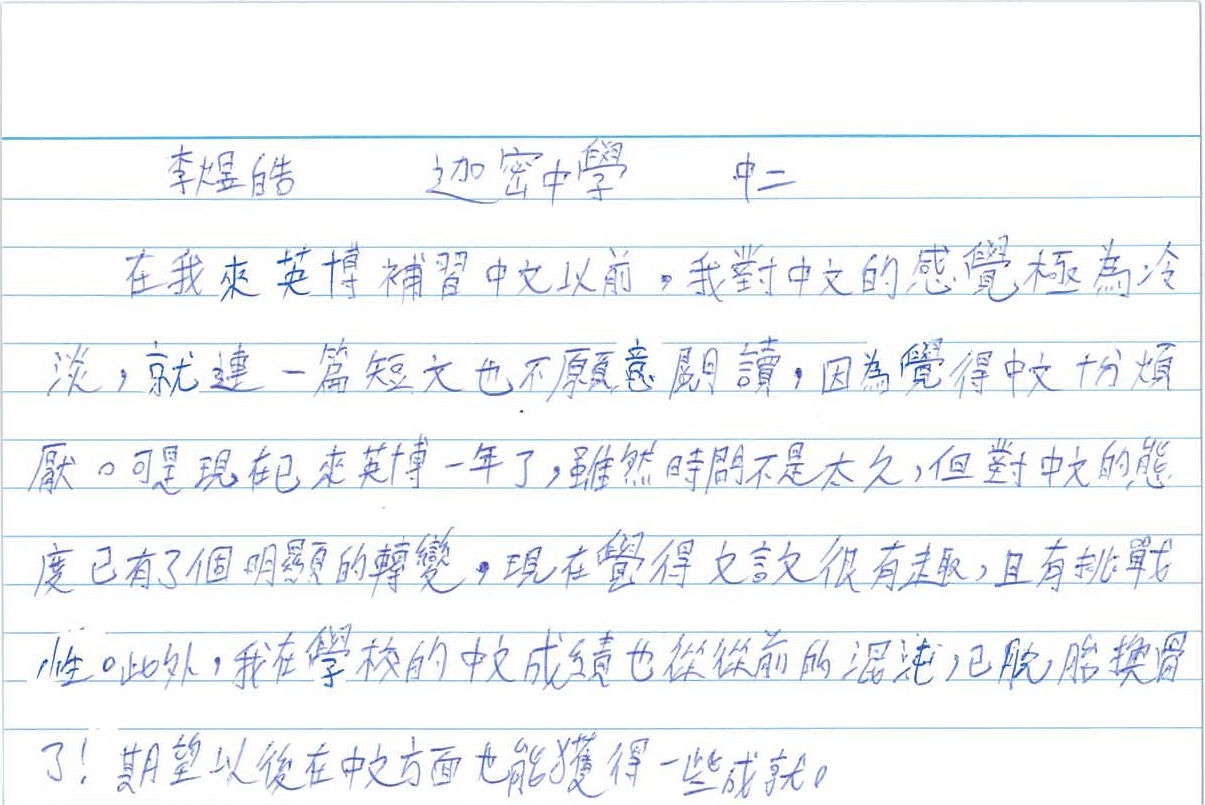 李煜皓 迦密中學 中二
在我來英博補習中文以前，我對中文的感覺極為冷
淡，就連一篇短文也不願意閱讀，因為覺得中文十分煩
厭。可是現在已來英博一年了，雖然時間不是太久，但對中文的態
度已有了個明顯的轉變，現在覺得文言文很有趣，且有挑戰
性。此外，我在學校的中文成績也從從前的混沌，已脫胎換骨
了！期望以後在中文方面也能獲得一些成就。